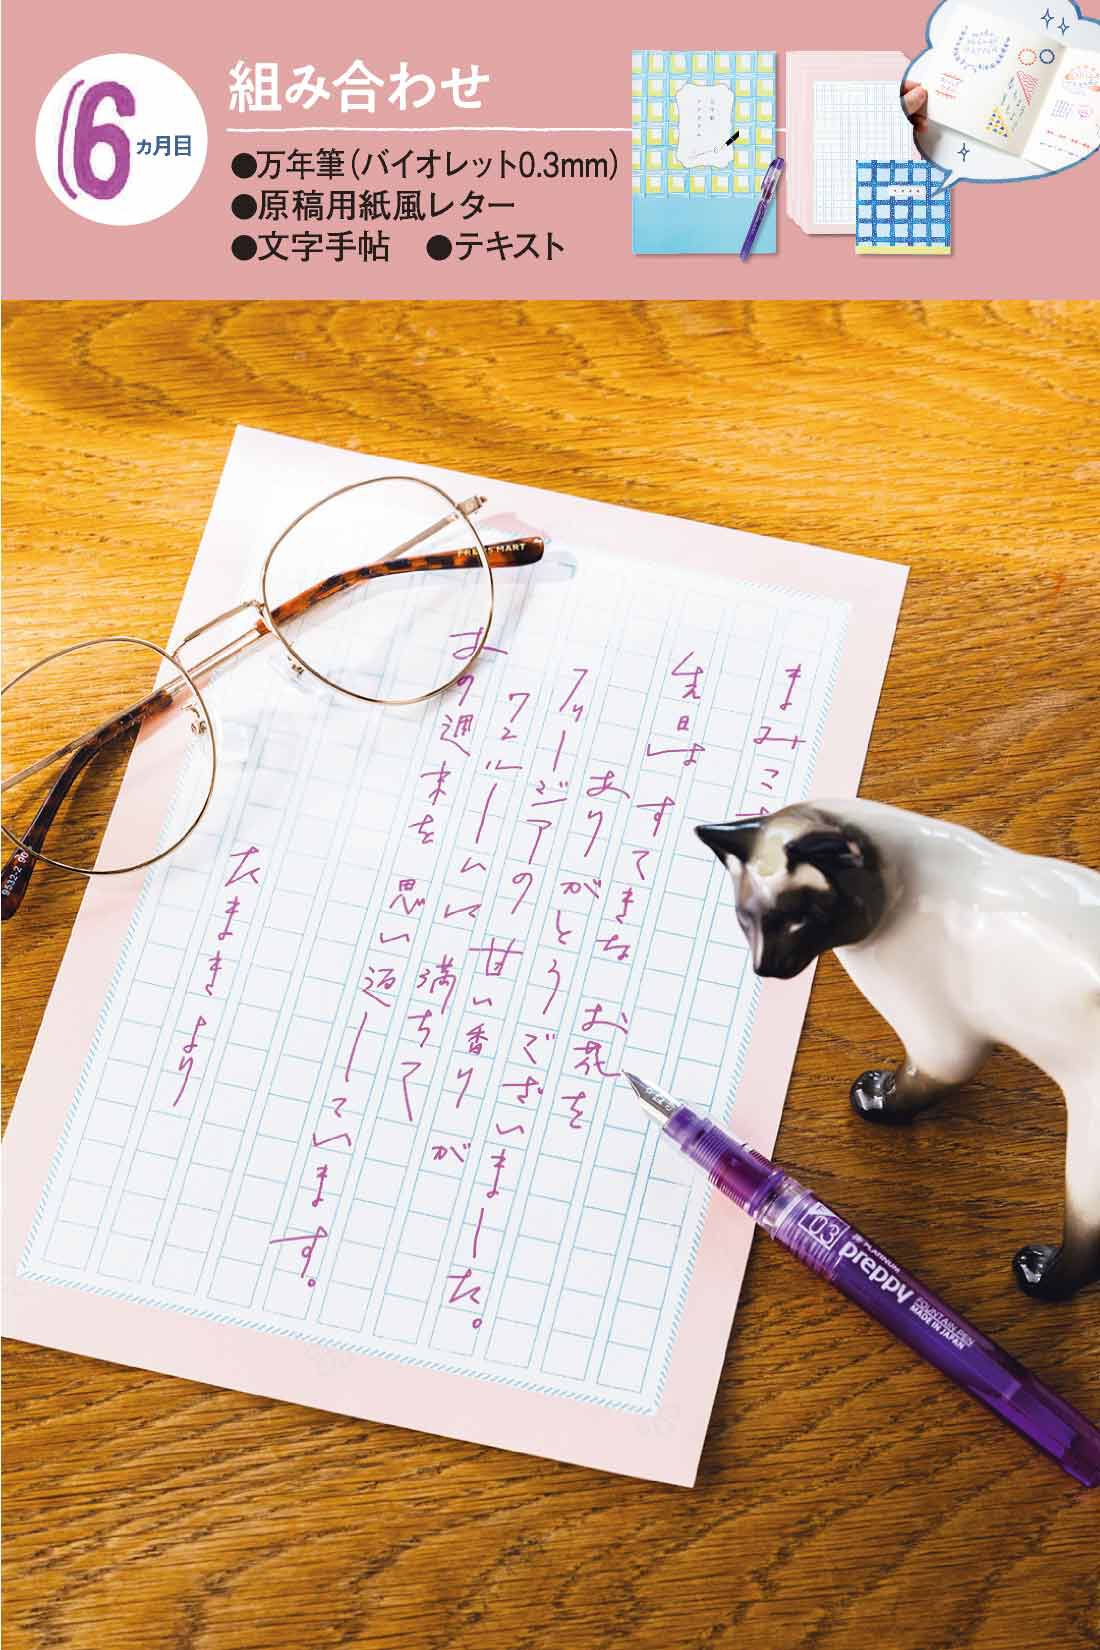 6
ヵ月目
組み合わせ
●万年筆(バイオレット0.3mm)
●原稿用紙風レター
●文字手帖 ●テキスト
まみこ
先日は すてきな お花を
ありがとうございました。
フリージアの 甘い香りが
に 満ちて
あの週末を 思い返しています。
たまき より
03
PLATINUM
preppy
FOUNTAIN PEN
MADE IN JAPAN